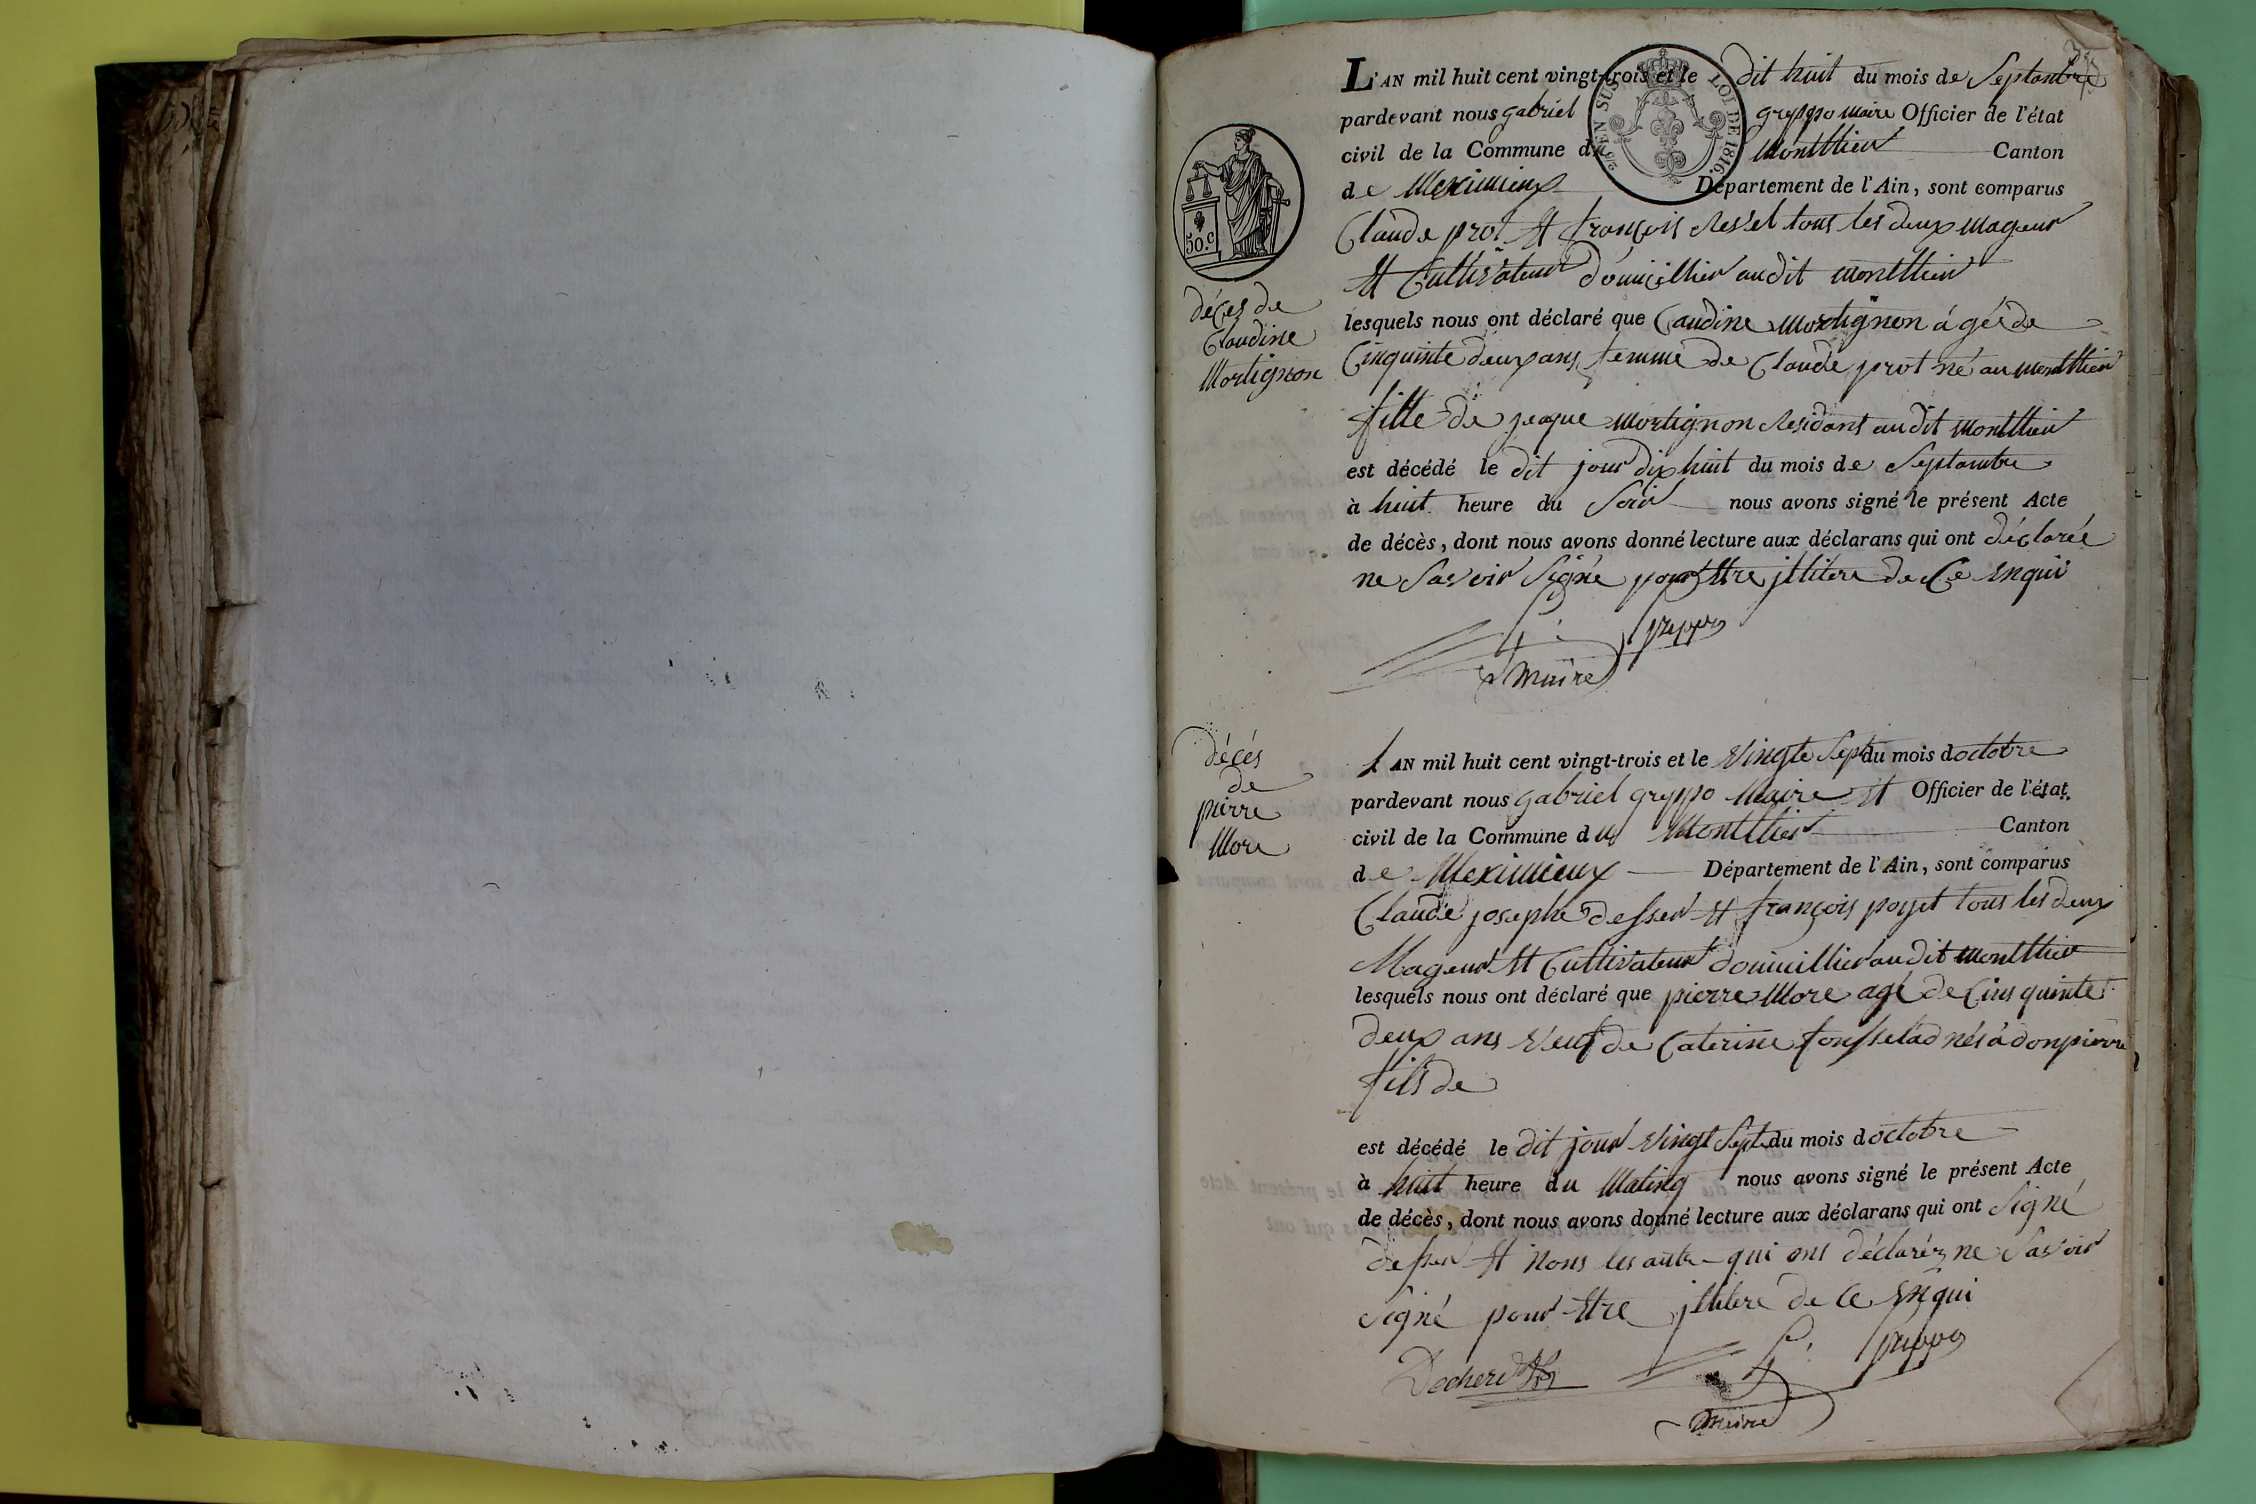 L'AN mil huit cent vingt-trois et le dit huit du mois de Septambre
pardevant nous gabriel greppo maire Officier de l'état
civil de la Commune du Montllier Canton
de Meximieux Département de l'Ain, sont comparus
EN SUS LOI DE 1816.
50.c
Claude prot et françois Ressel tous les deux mageur
et Cultivateur domicillier audit montllier
décés de
Claudine
Mortignon
lesquels nous ont déclaré que Caudine mortignon ágés de
Cinquinte deux ans femme de Claude prot né au montllier
fille de jeaque mortignon Residant audit montllier
est décédé le dit jour dix huit du mois de Septambre
à huit heure du Soir nous avons signé le présent Acte
de décès, dont nous avons donné lecture aux déclarans qui ont déclarée
ne Savoir Signé pour Etre jllitere de Ce Enqui
greppo
maire
décés
de
pierre
More
L'AN mil huit cent vingt-trois et le vingte Sept du mois doctobre
pardevant nous gabriel greppo Maire et Officier de l'état
civil de la Commune du Montllier Canton
de Meximieux Département de l'Ain, sont comparus
Claude josephe desser et françois poyet tous les deux
Mageur et Cultivateur domicillier audit montllier
lesquels nous ont déclaré que pierre More agé de Cinquinte
deux ans veuf de Caterine nés á donpierre
fils de
est décédé le dit jour vingt Sept du mois doctobre
à huit heure du Mating nous avons signé le présent Acte
de décès, dont nous avons donné lecture aux déclarans qui ont Signé
desser et Nons les autre qui ons déclaréz ne Savoir
Signé pour Etre jllitere de Ce Enqui
greppo
maire